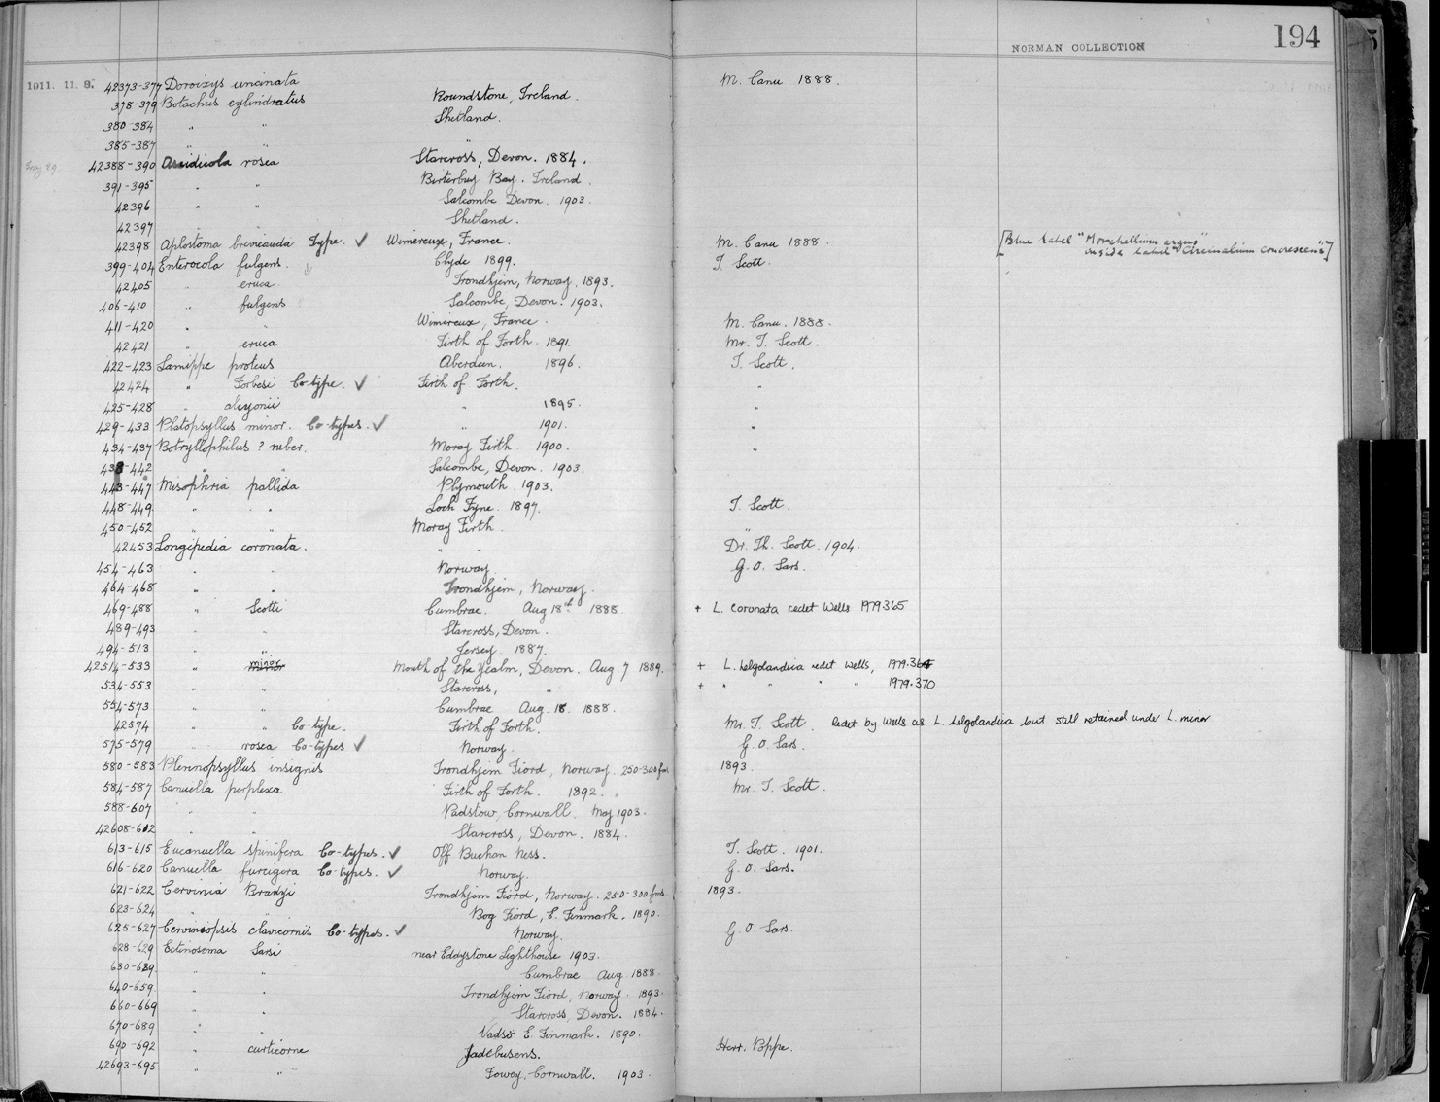 NORMAN COLLECTION 194
1911. 11. 8. 42373-377 Doroixys uncinata M. Canu 1888.
378-379 Botachus cylindratus Roundstone, Ireland.
380-384 " " Shetland.
385-387 " " "
42388-390 rosea Starcross, Devon. 1884.
391-395 " " Birterbuy Bay. Ireland.
42396 " " Salcombe Devon. 1903.
42397 " " Shetland.
42398 Aplostoma brevicauda Type. ✓ Wimereux, France. M. Canu 1888. [Blue Label "Morchellium argus"
inside Label "Circinalium concrescens"]
399-404 Enterocola fulgens. Clyde 1899. T. Scott
42405 " eruca Trondhjem, Norway. 1893.
406-410 " fulgens Salcombe, Devon. 1903.
411-420 " " Wimireux, France. M. Canu. 1888.
42421 " eruca Firth of Forth. 1891. Mr. T. Scott.
422-423 Lamippe proteus Aberdeen. 1896. T. Scott.
42424 " Forbesi Co-type. ✓ Firth of Forth. "
425-428 " alcyonii " 1895. "
429-433 Platopsyllus minor. Co-types. ✓ " 1901. "
434-437 Botryllophilus ? ruber. Moray Firth 1900. "
438-442 " " Salcombe, Devon. 1903.
443-447 Misophria pallida Plymouth 1903.
448-449 " " Loch Fyne. 1897. T. Scott.
450-452 " " Moray Firth. "
42453 Longipedia coronata. " Dr. Th. Scott. 1904.
454-463 " " Norway. G. O. Sars.
464-468 " " Trondhjem, Norway.
469-488 " Scotti Cumbrae. Aug 18th 1888. + L. coronata redet Wells 1979.365
489-493 " " Starcross, Devon.
494-513 " " Jersey. 1887.
42514-533 " minor Mouth of the Yealm, Devon. Aug 7 1889. + L. helgolandica redet Wells, 1979.364
534-553 " " Starcross, " + " " " " 1979.370
554-573 " " Cumbrae Aug. 18. 1888.
42574 " " Co type. Firth of Forth. Mr. T. Scott. Redet by Wells as L. helgolandica but still retained under L. minor
575-579 " rosea Co-types ✓ Norway. G. O. Sars.
580-583 insignis Trondhjem Fiord, Norway. 250-300 fms 1893.
584-587 Canuella perplexa Firth of Forth. 1892. Mr. T. Scott.
588-607 " " Padstow, Cornwall. May 1903.
42608-612 " " Starcross, Devon. 1884.
613-615 Eucanuella spinifera Co-types. ✓ Off Buchan Ness. T. Scott. 1901.
616-620 Canuella furcigera Co-types. ✓ Norway. G. O. Sars.
621-622 Cervinia Bradyi Trondhjem Fiord, Norway. 250-300 fms. 1893.
623-624 " " Bog Fiord, E. Finmark. 1890.
625-627 Cerviniopsis clavicornis Co-types. ✓ Norway. G. O Sars.
628-629 Ectinosoma Sarsi near Eddystone Lighthouse 1903.
630-639 " " Cumbrae Aug. 1888.
640-659 " " Trondhjem Fiord, Norway. 1893.
660-669 " " Starcross, Devon. 1884.
670-689 " " Vadsö E. Finmark. 1890.
690-692 " curticorne Jadebusens. Herr. Poppe.
42693-695 " " Fowey, Cornwall. 1903.